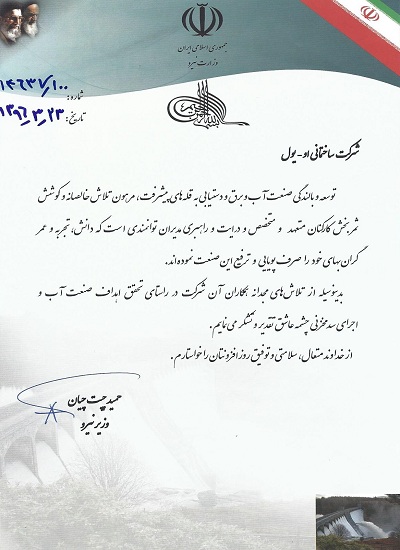 جمهوری اسلامی ایران
وزارت نیرو
شماره: ۱۴۶۳۱/۱۰۰
تاریخ: ۱۳۹۶/۳/۲۳
شرکت ساختمانی او - یول
توسعه و بالندگی صنعت آب و برق و دستیابی به قله‌های پیشرفت، مرهون تلاش خالصانه و کوشش
ثمربخش کارکنان متعهد و متخصص و درایت و راهبری مدیران توانمندی است که دانش، تجربه و عمر
گران‌بهای خود را صرف پویایی و ترفیع این صنعت نموده‌اند.
بدینوسیله از تلاش‌های مجدانه همکاران آن شرکت در راستای تحقق اهداف صنعت آب و
اجرای سد مخزنی چشمه عاشق تقدیر و تشکر می نمایم.
از خداوند متعال، سلامتی و توفیق روزافزونتان را خواستارم.
حمید چیت چیان
وزیر نیرو